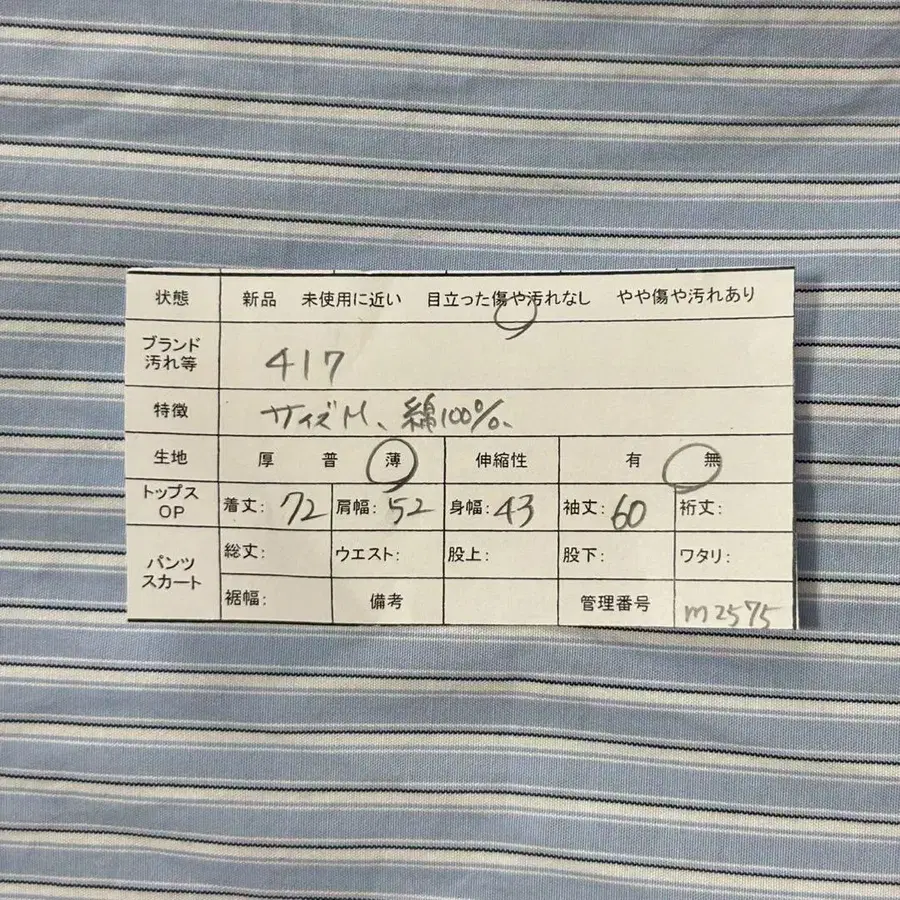 状態 新品 未使用に近い 目立った傷や汚れなし やや傷や汚れあり
ブランド
汚れ等
417
特徴 サイズM、綿100%、
生地 厚 普 薄 伸縮性 有 無
トップス
OP
着丈: 72 肩幅: 52 身幅: 43 袖丈: 60 裄丈:
パンツ
スカート
総丈: ウエスト: 股上: 股下: ワタリ:
裾幅: 備考 管理番号 m2575